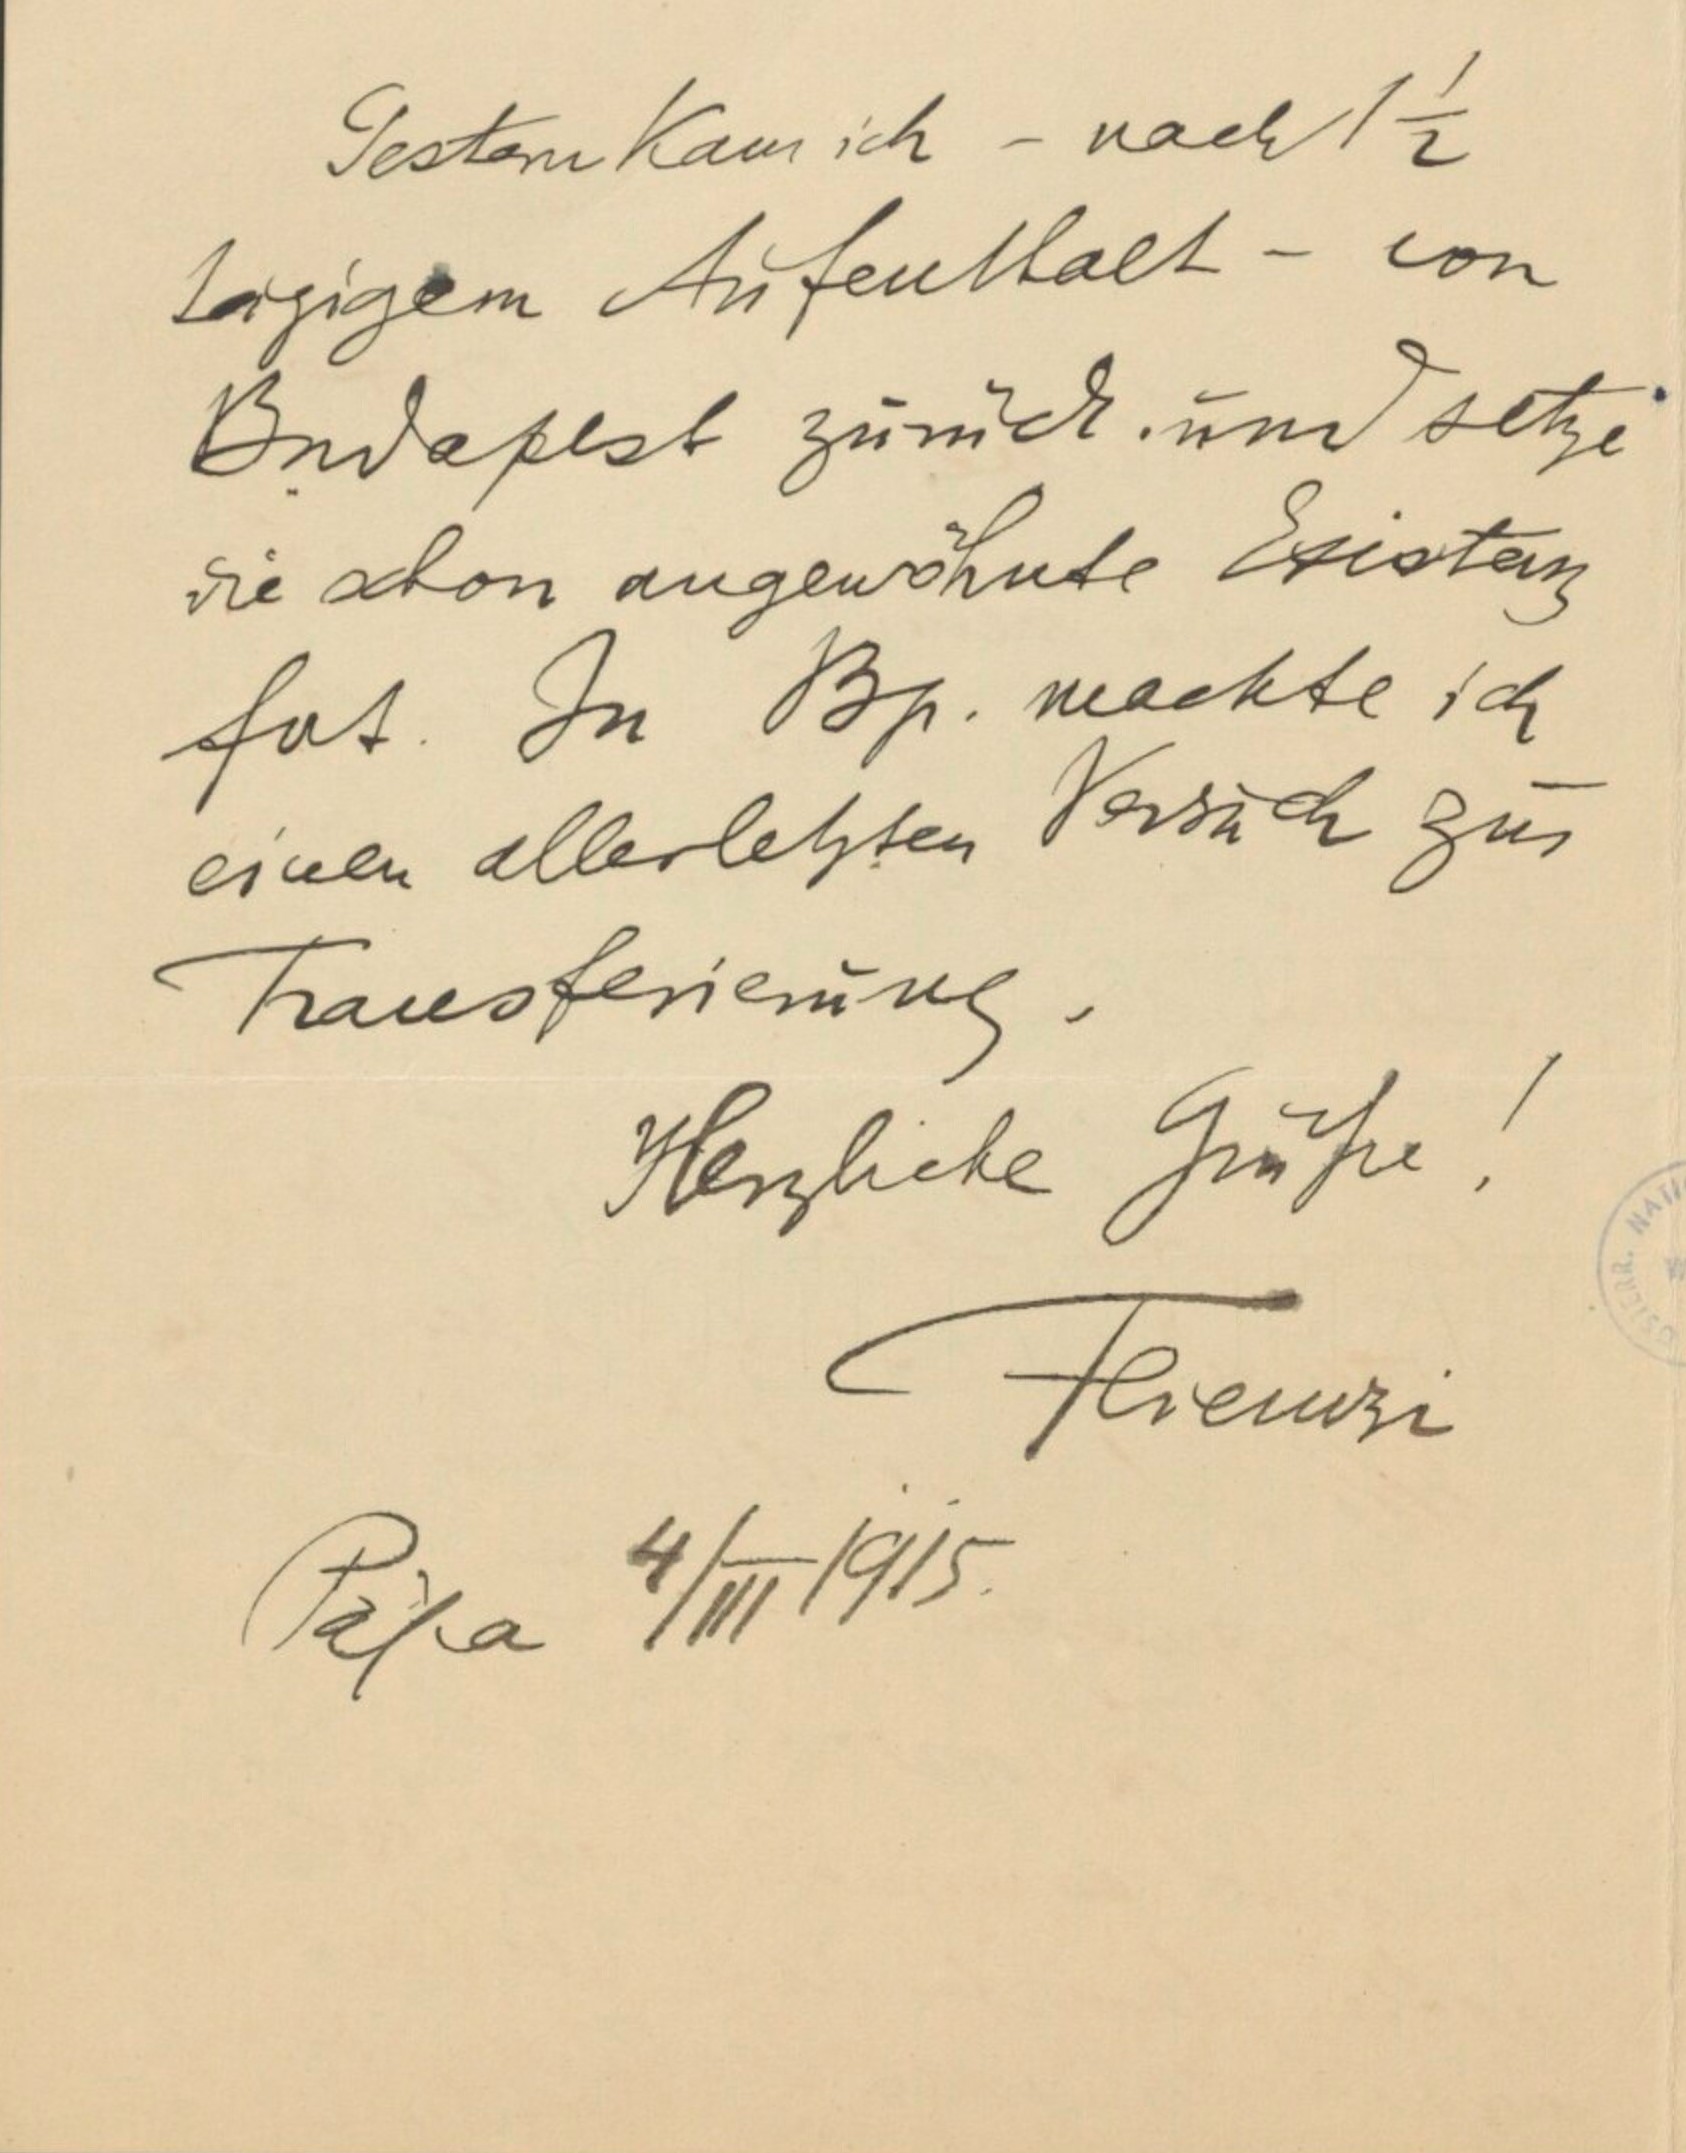 Gestern kam ich – nach 1 1/2
tägigem Aufenthalt – von
Budapest zurück und setze
die schon angewöhnte Existenz
fort. In Bp. machte ich
einen allerletzten Versuch zur
Transferierung.
Herzliche Grüße!
Ferenczi
Pápa 4/III 1915.
ÖSTERR. NATI